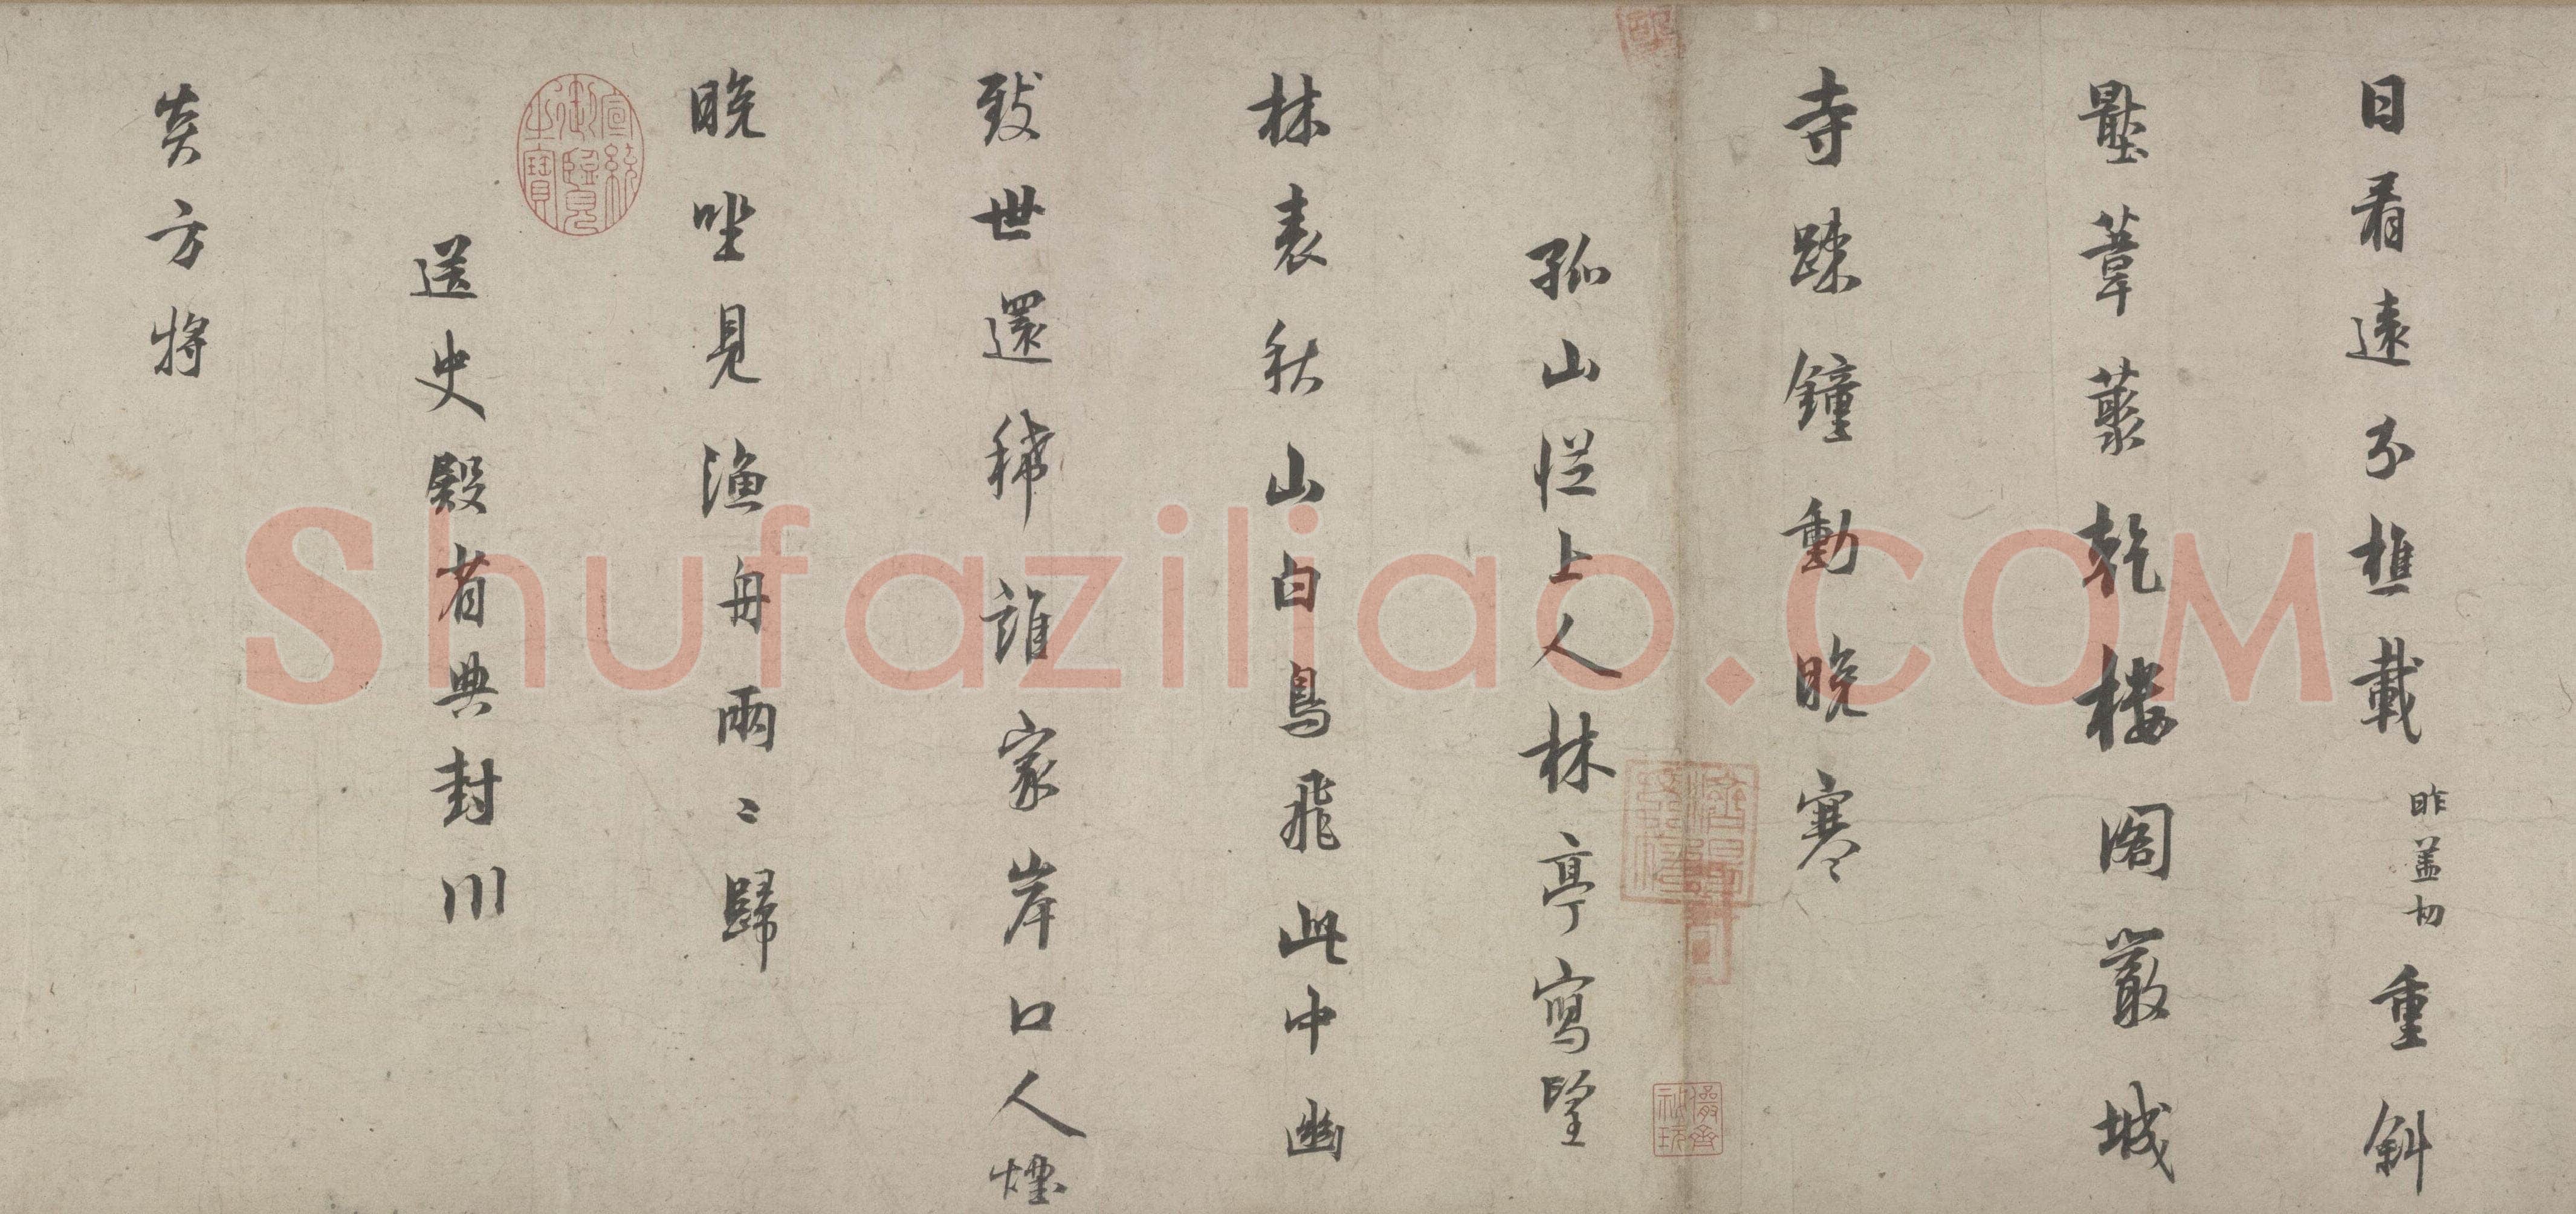 日看遠分樵載昨蓋切重斜
壓葦藂乾樓閣嚴城
寺踈鐘動晚寒
孤山從上人林亭寫望
林表秋山白鳥飛此中幽
致世還稀誰家岸口人煙
晚坐見漁舟兩〻歸
送史殿省典封川
炎方將
宣統御覽之寶
儼齋秘玩
Shufaziliao.COM